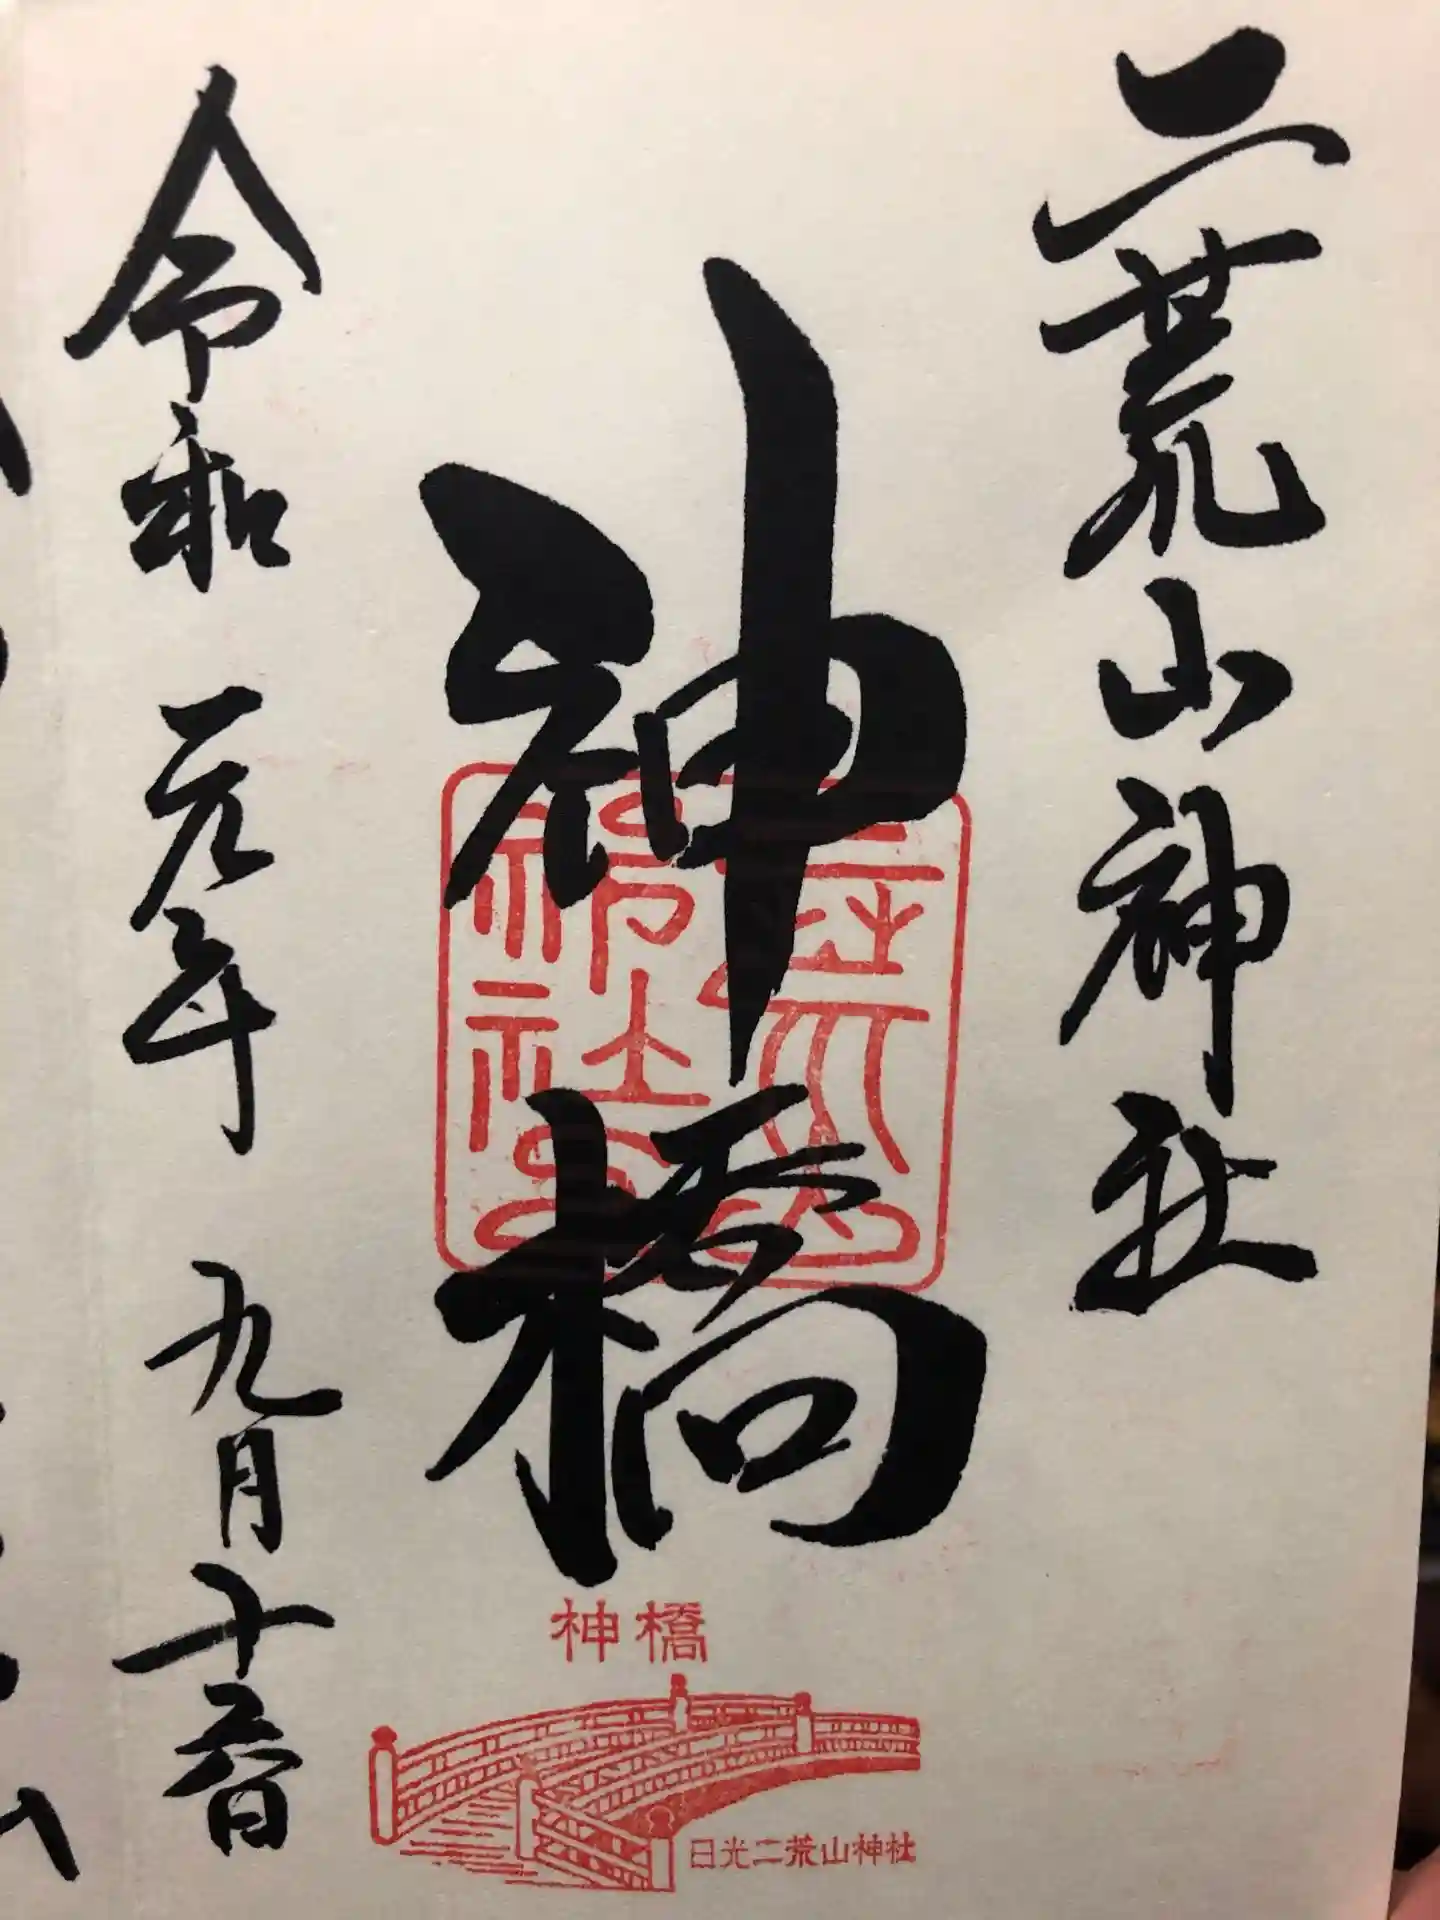 二荒山神社
神橋
令和元年九月十五日
二荒山神社
神橋
日光二荒山神社